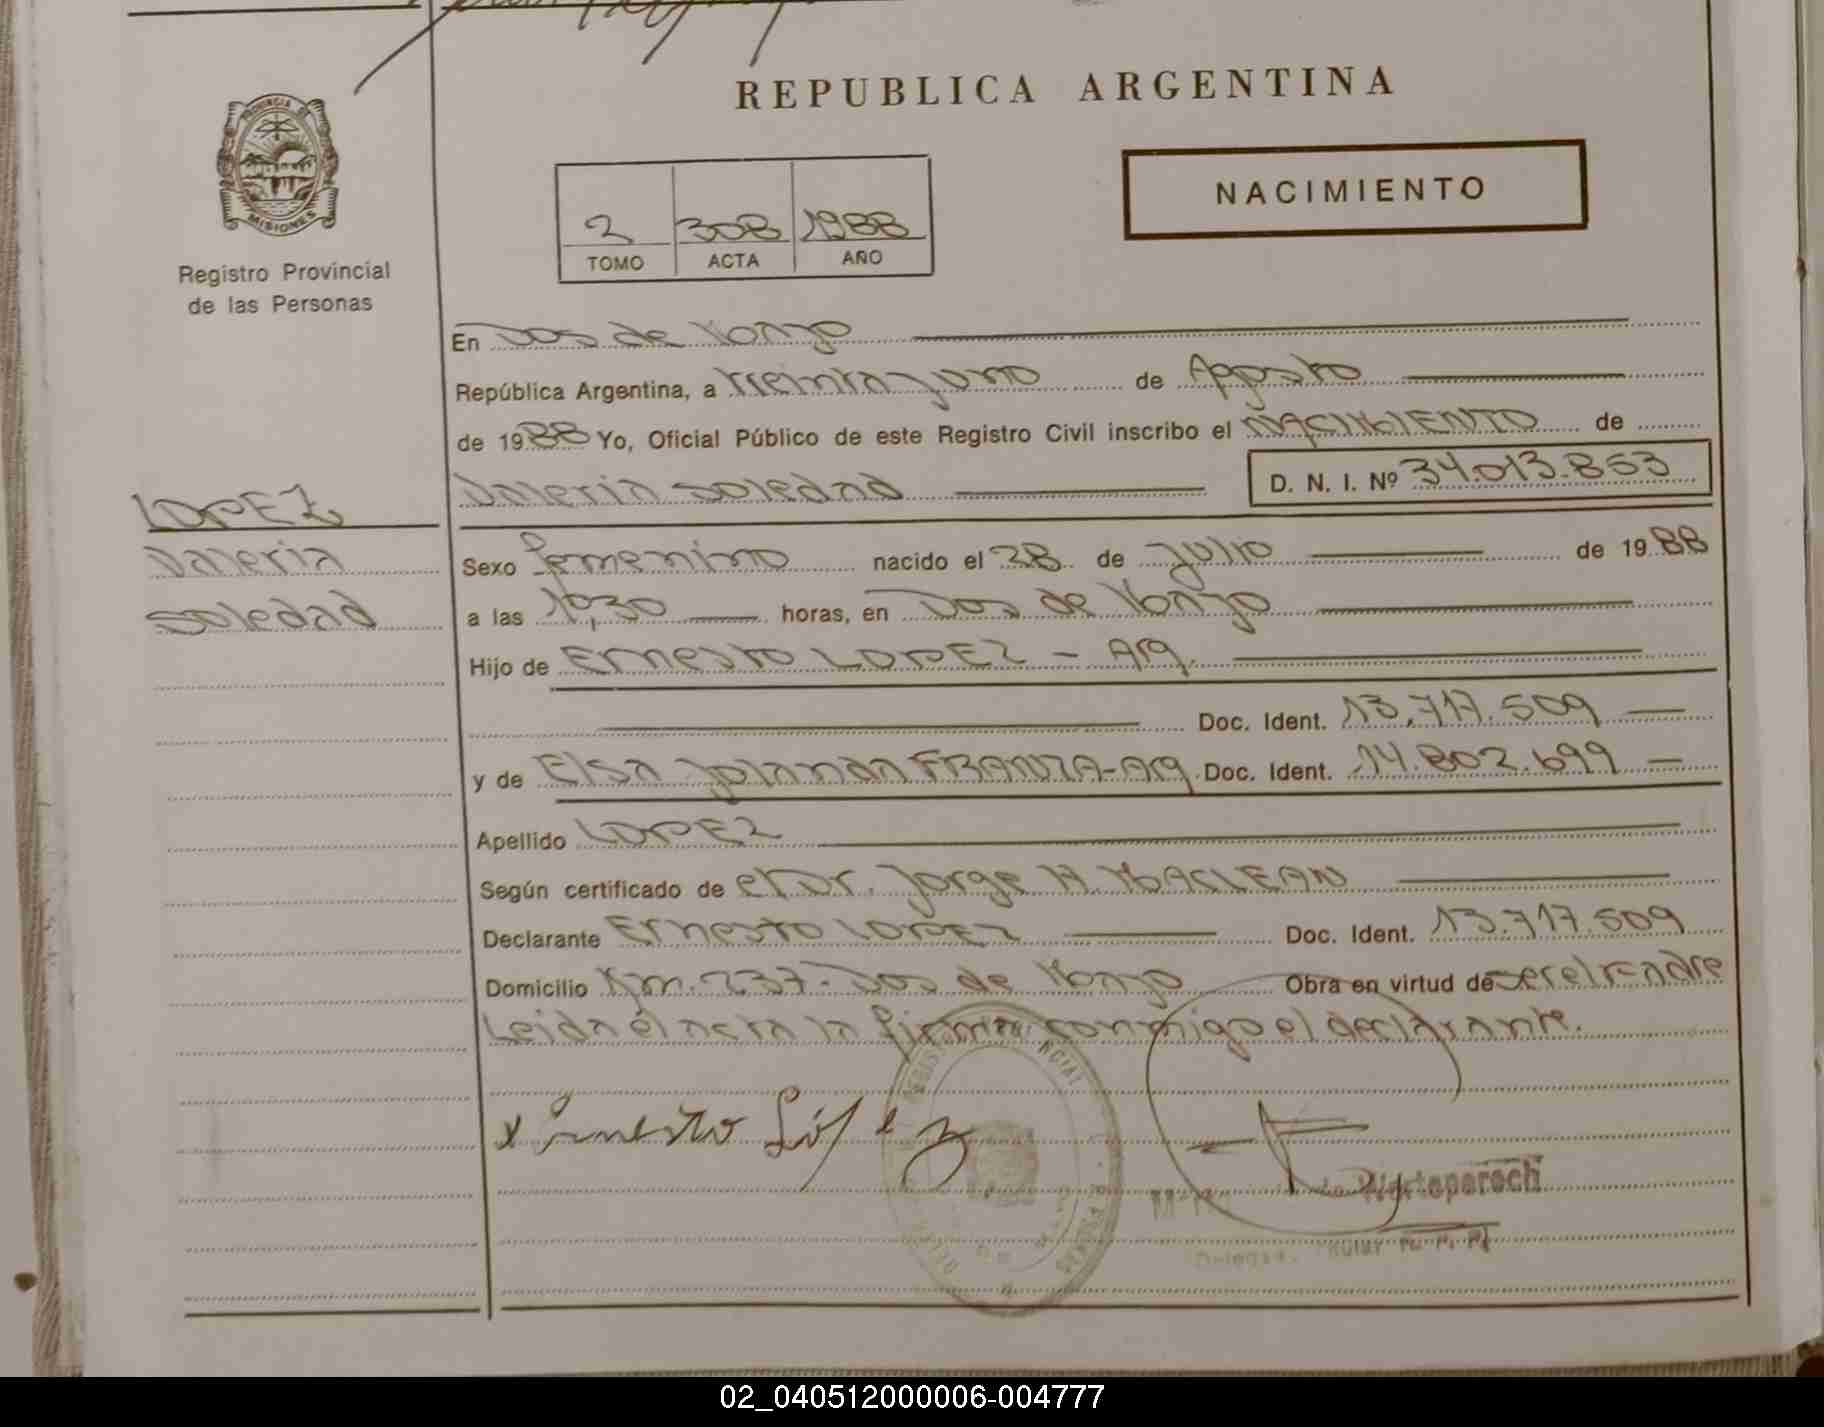 REPUBLICA ARGENTINA
PROVINCIA DE MISIONES
Registro Provincial
de las Personas
NACIMIENTO
2 308 1988
TOMO ACTA AÑO
En Dos de Mayo
República Argentina, a treinta y uno de Agosto
de 1988 Yo, Oficial Público de este Registro Civil inscribo el NACIMIENTO de
Valeria Soledad D. N. I. Nº 34.013.853
LOPEZ
Valeria
Soledad
Sexo femenino nacido el 28 de Julio de 1988
a las 10,30 horas, en Dos de Mayo
Hijo de Ernesto LOPEZ - Arg.
Doc. Ident. 13.717.509
y de Elsa FRANZA - Arg. Doc. Ident. 14.802.699
Apellido LOPEZ
Según certificado de el Dr. Jorge H. MACLEAN
Declarante Ernesto LOPEZ Doc. Ident. 13.717.509
Domicilio Km. 237 - Dos de Mayo Obra en virtud de ser el Padre
Leida el acta la firma conmigo el declarante.
x Ernesto López
02_040512000006-004777